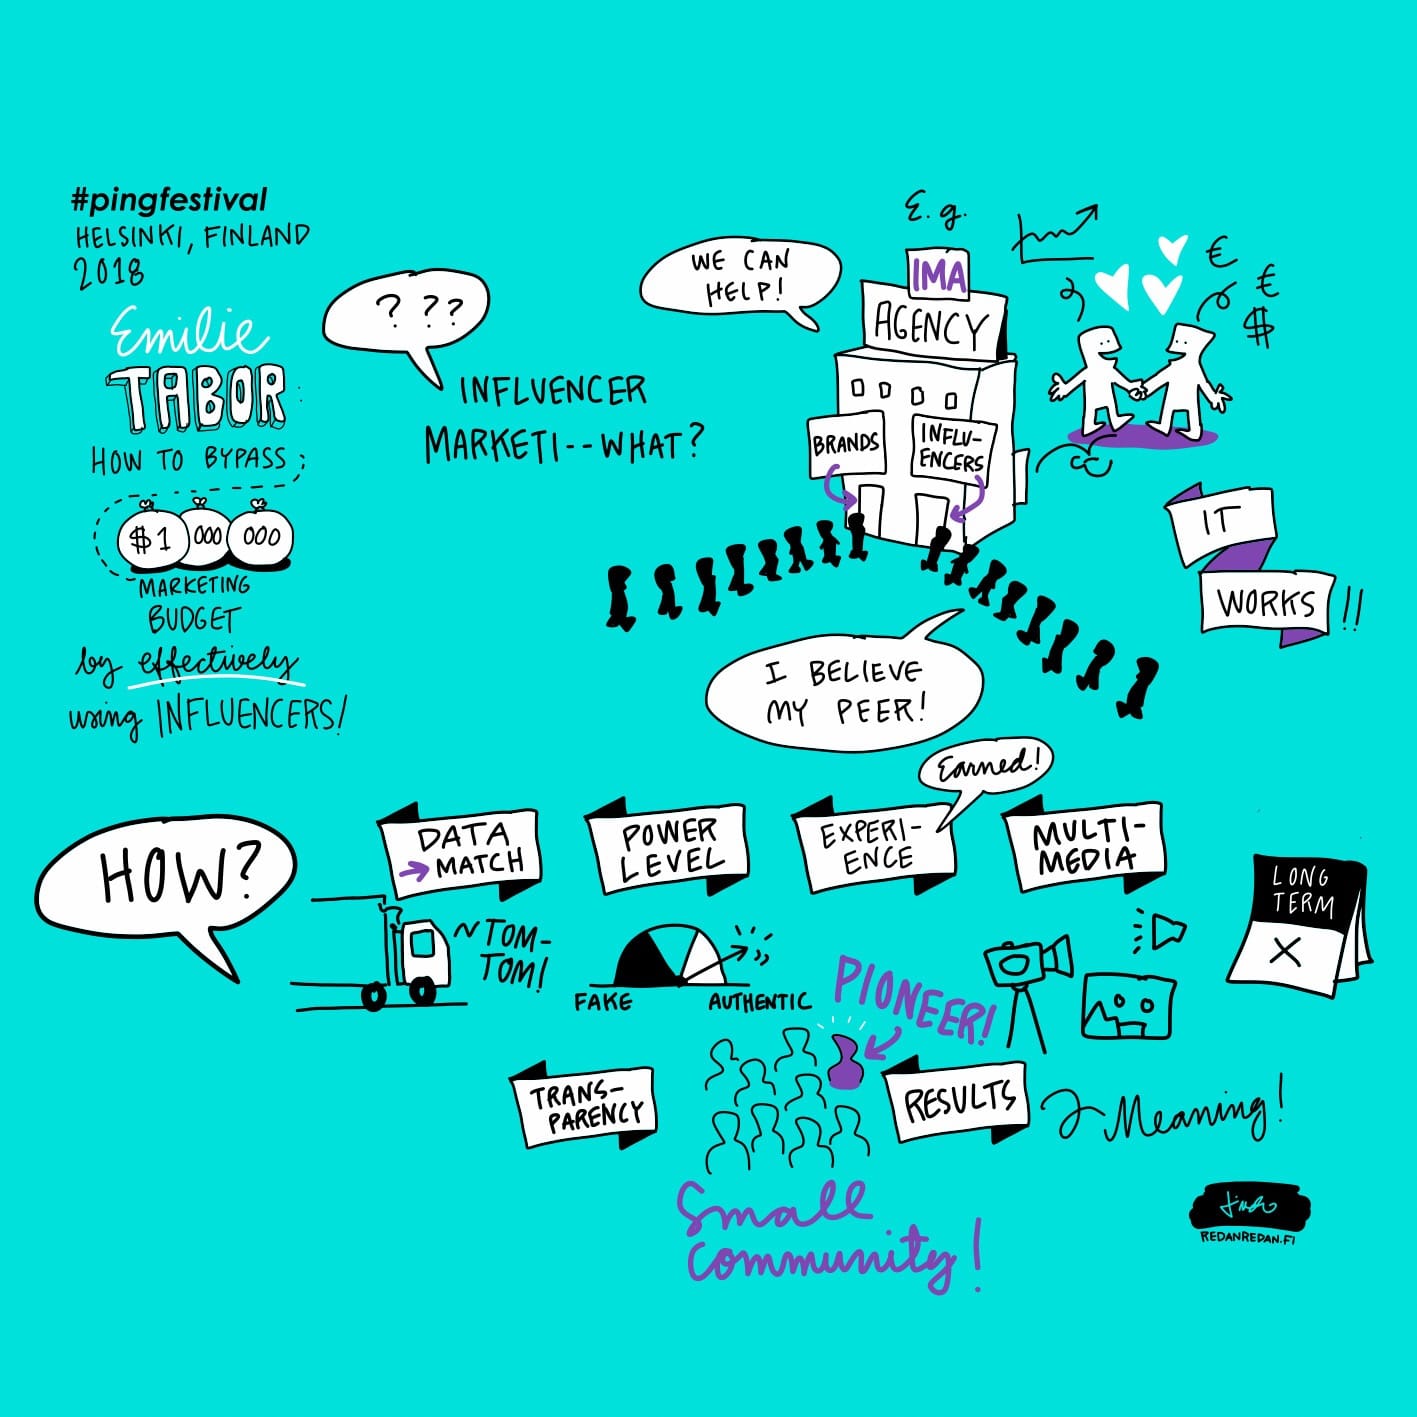 #pingfestival
HELSINKI, FINLAND
2018
Emilie
TABOR
HOW TO BYPASS
$1 000 000
MARKETING
BUDGET
by effectively
using INFLUENCERS!
? ??
INFLUENCER
MARKETI--WHAT?
WE CAN
HELP!
E.g.
IMA
AGENCY
BRANDS
INFLU-
ENCERS
€
€
$
IT
WORKS!!
I BELIEVE
MY PEER!
Earned!
HOW?
DATA
→ MATCH
~TOM-
TOM!
POWER
LEVEL
FAKE
AUTHENTIC
EXPERI-
ENCE
MULTI-
MEDIA
LONG
TERM
X
PIONEER!
TRANS-
PARENCY
Small
community!
RESULTS
Meaning!
REDANREDAN.FI